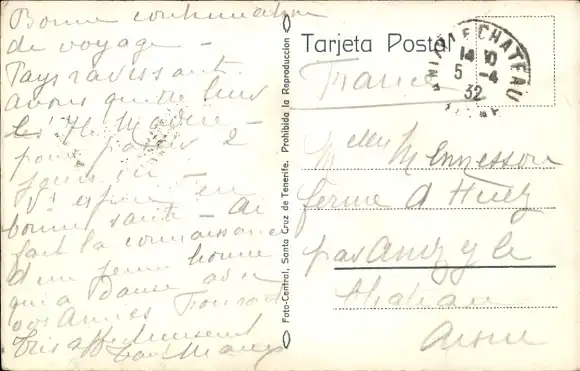 Bonne continuation
de voyage -
Pays ravissant
avons quitté hier
Madère -
pour passer 2
jours ici -
Vs espère en
bonne santé - Ai
fait la connaissance
d'un jeune homme
qui a dansé avec
vos Amies
Très affectueusement
Tarjeta Postal
CHATEAU
14 10
5 -4
32
France
Melle M Ennesson
ferme d'Huez
par Anizy le
Chateau
Aisne
Foto-Central, Santa Cruz de Tenerife. Prohibida la Reproducción